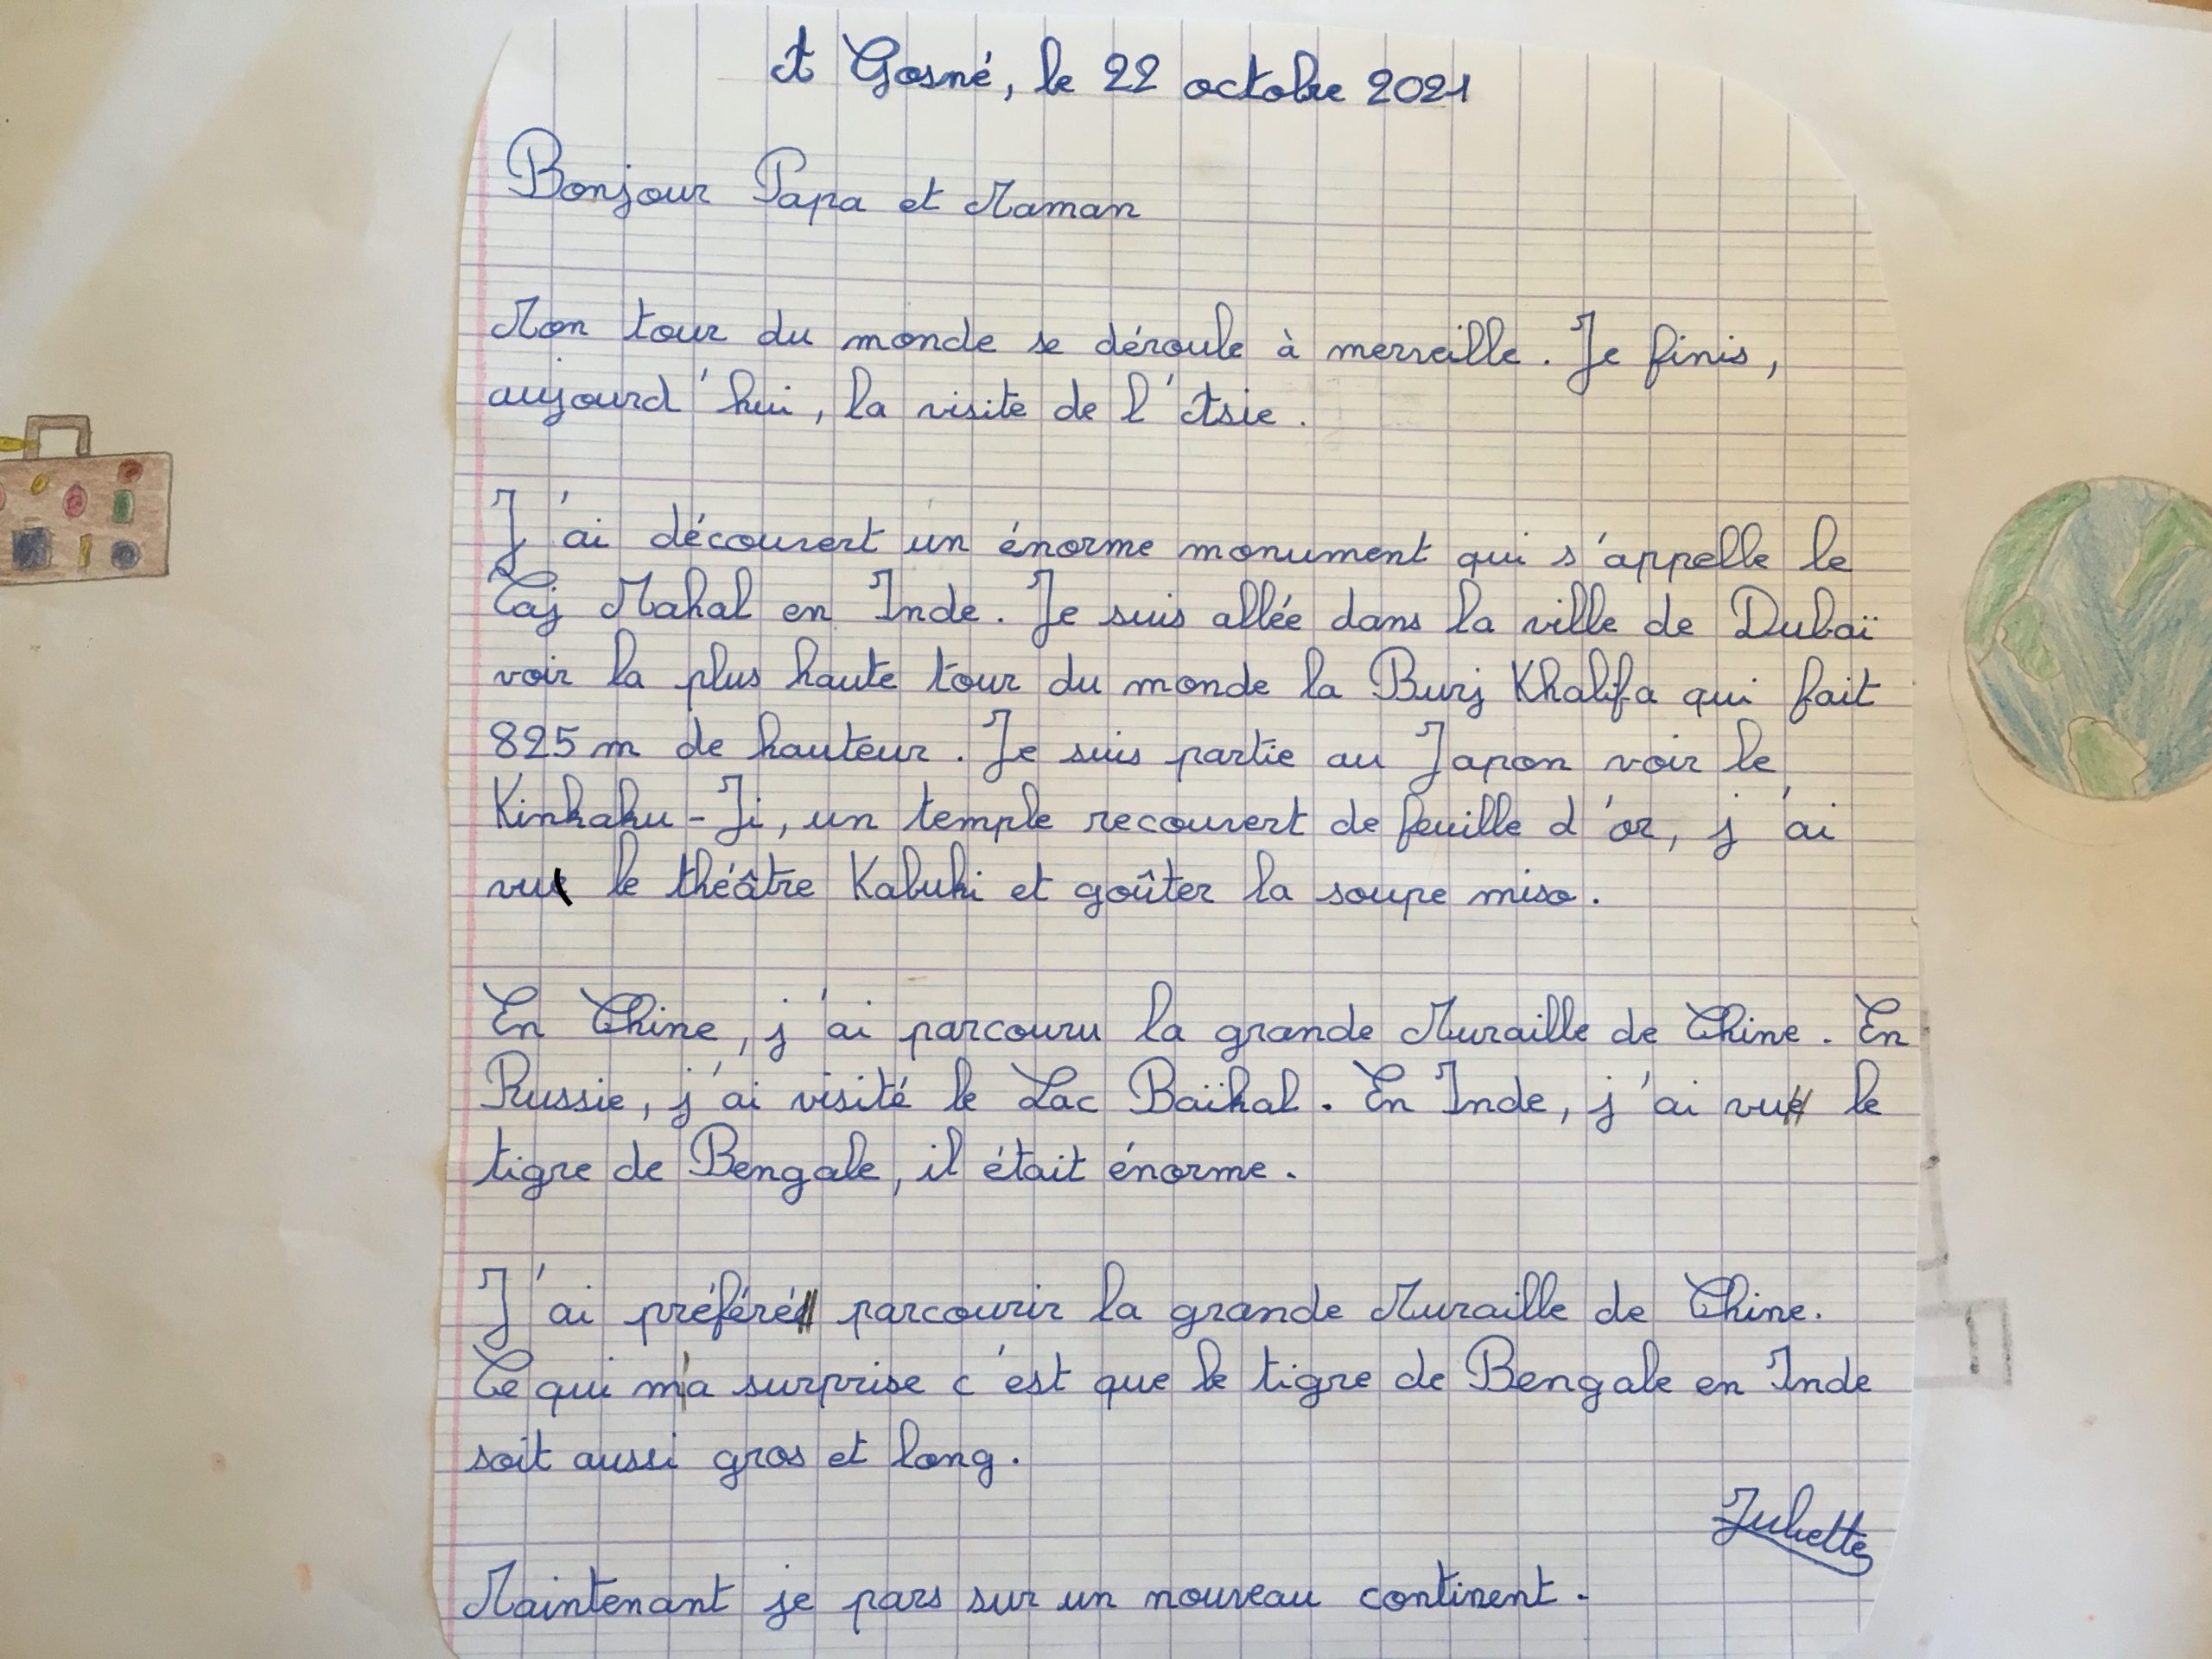 A Gosné, le 22 octobre 2021
Bonjour Papa et Maman
Mon tour du monde se déroule à merveille. Je finis,
aujourd'hui, la visite de l'Asie.
J'ai découvert un énorme monument qui s'appelle le
Taj Mahal en Inde. Je suis allée dans la ville de Dubaï
voir la plus haute tour du monde la Burj Khalifa qui fait
825 m de hauteur. Je suis partie au Japon voir le
Kinkaku-Ji, un temple recouvert de feuille d'or, j'ai
vu le théâtre Kabuki et goûter la soupe miso.
En Chine, j'ai parcouru la grande Muraille de Chine. En
Russie, j'ai visité le Lac Baïkal. En Inde, j'ai vu le
tigre de Bengale, il était énorme.
J'ai préféré parcourir la grande Muraille de Chine.
Ce qui m'a surprise c'est que le tigre de Bengale en Inde
soit aussi gros et long.
Juliette
Maintenant je pars sur un nouveau continent.